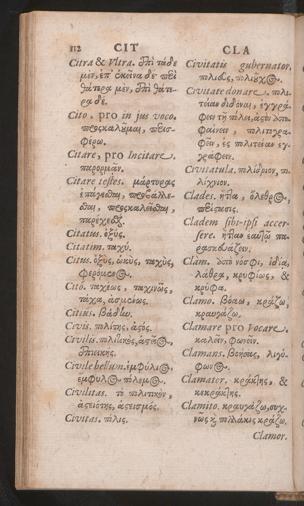 112 CIT CLA
Citra & Vltra. ἐπὶ τάδε
μὲν, ἐπ' ἐκεῖνα δὲ· περὶ
θάτερα μὲν, ἐπὶ θάτε-
ρα δέ.
Cito, pro in jus voco.
προσκαλοῦμαι, προσ-
φέρω.
Citare, pro Incitare.
παρορμᾶν.
Citare testes. μάρτυρας
παρέχεσθαι.
Citatus. ὀξύς.
Citatim. ταχύ.
Citus. ὀξύς, ὠκύς, ταχύς,
φερόμενος.
Cito. ταχέως, ταχινῶς,
τάχα, ἀσμένως.
Citius. θᾶσσον.
Civis. πολίτης, ἀστός.
Civilis. πολιτικός, ἀστεῖος,
Civile bellum. ἐμφύλιος,
ἔμφυλος πόλεμος.
Civilitas. τὸ πολιτικὸν,
ἀστειότης, ἀστεισμός.
Civitas. πόλις.
Civitatis gubernator.
πόλεως, πολιοῦχος.
Civitate donare. πολι-
τείαν διδόναι, ἐγγρά-
φειν τῇ πόλει,
φαίνειν, πολιτογρα-
φεῖν, εἰς πολιτείαν ἐγ-
γράφειν.
Civitatula. πολίδριον, πο-
λίχνιον.
Clades. ἧττα, ὄλεθρος,
Cladem sibi-ipsi accer-
sere. ἧτταν ἑαυτῷ πα-
ρασκευάζειν.
Clàm. νόσφι, ἰδίᾳ,
λάθρα, κρυφίως, &
κρύφα.
Clamo. βοάω, κράζω,
κραυγάζω.
Clamare pro Vocare.
καλεῖν, φωνεῖν.
Clamans. βοήσας, λιγύ-
φωνος.
Clamator. κράκτης, &
κεκράκτης.
Clamito. κραυγάζω, συχ-
νῶς κ̀ πολλάκις κράζω.
Clamor.